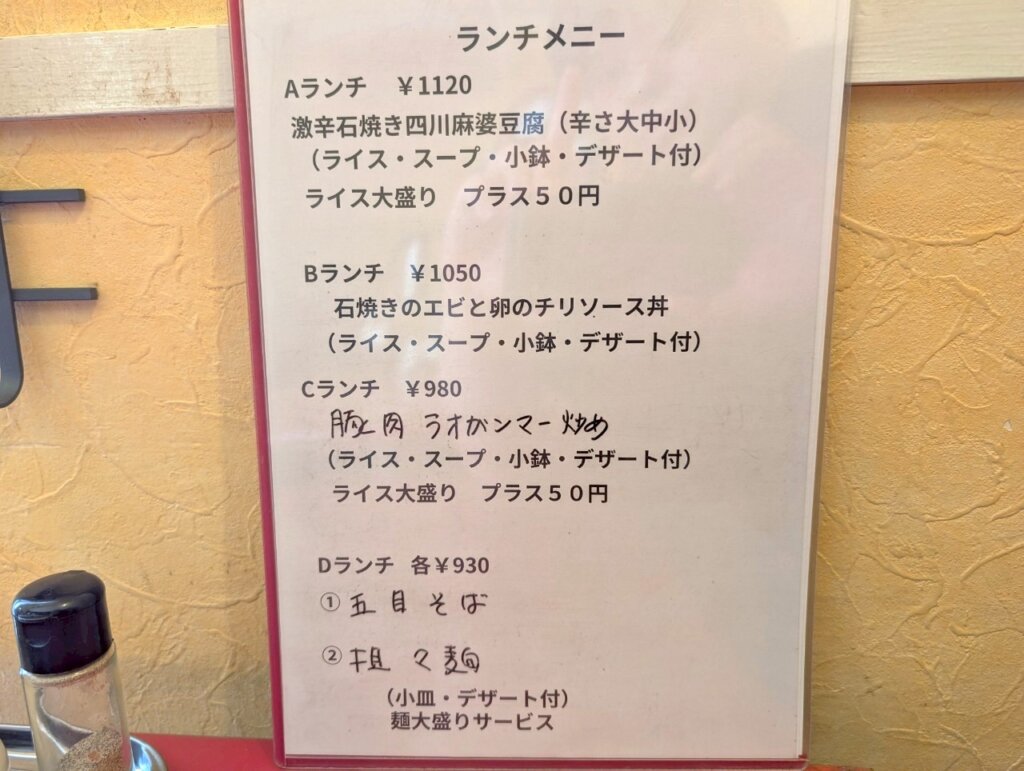 ランチメニー
Aランチ　￥1120
激辛石焼き四川麻婆豆腐（辛さ大中小）
（ライス・スープ・小鉢・デザート付）
ライス大盛り　プラス５０円
Bランチ　￥1050
石焼きのエビと卵のチリソース丼
（ライス・スープ・小鉢・デザート付）
Cランチ　￥980
豚肉 ラオガンマー炒め
（ライス・スープ・小鉢・デザート付）
ライス大盛り　プラス５０円
Dランチ　各￥930
① 五目そば
② 担々麺
（小皿・デザート付）
麺大盛りサービス